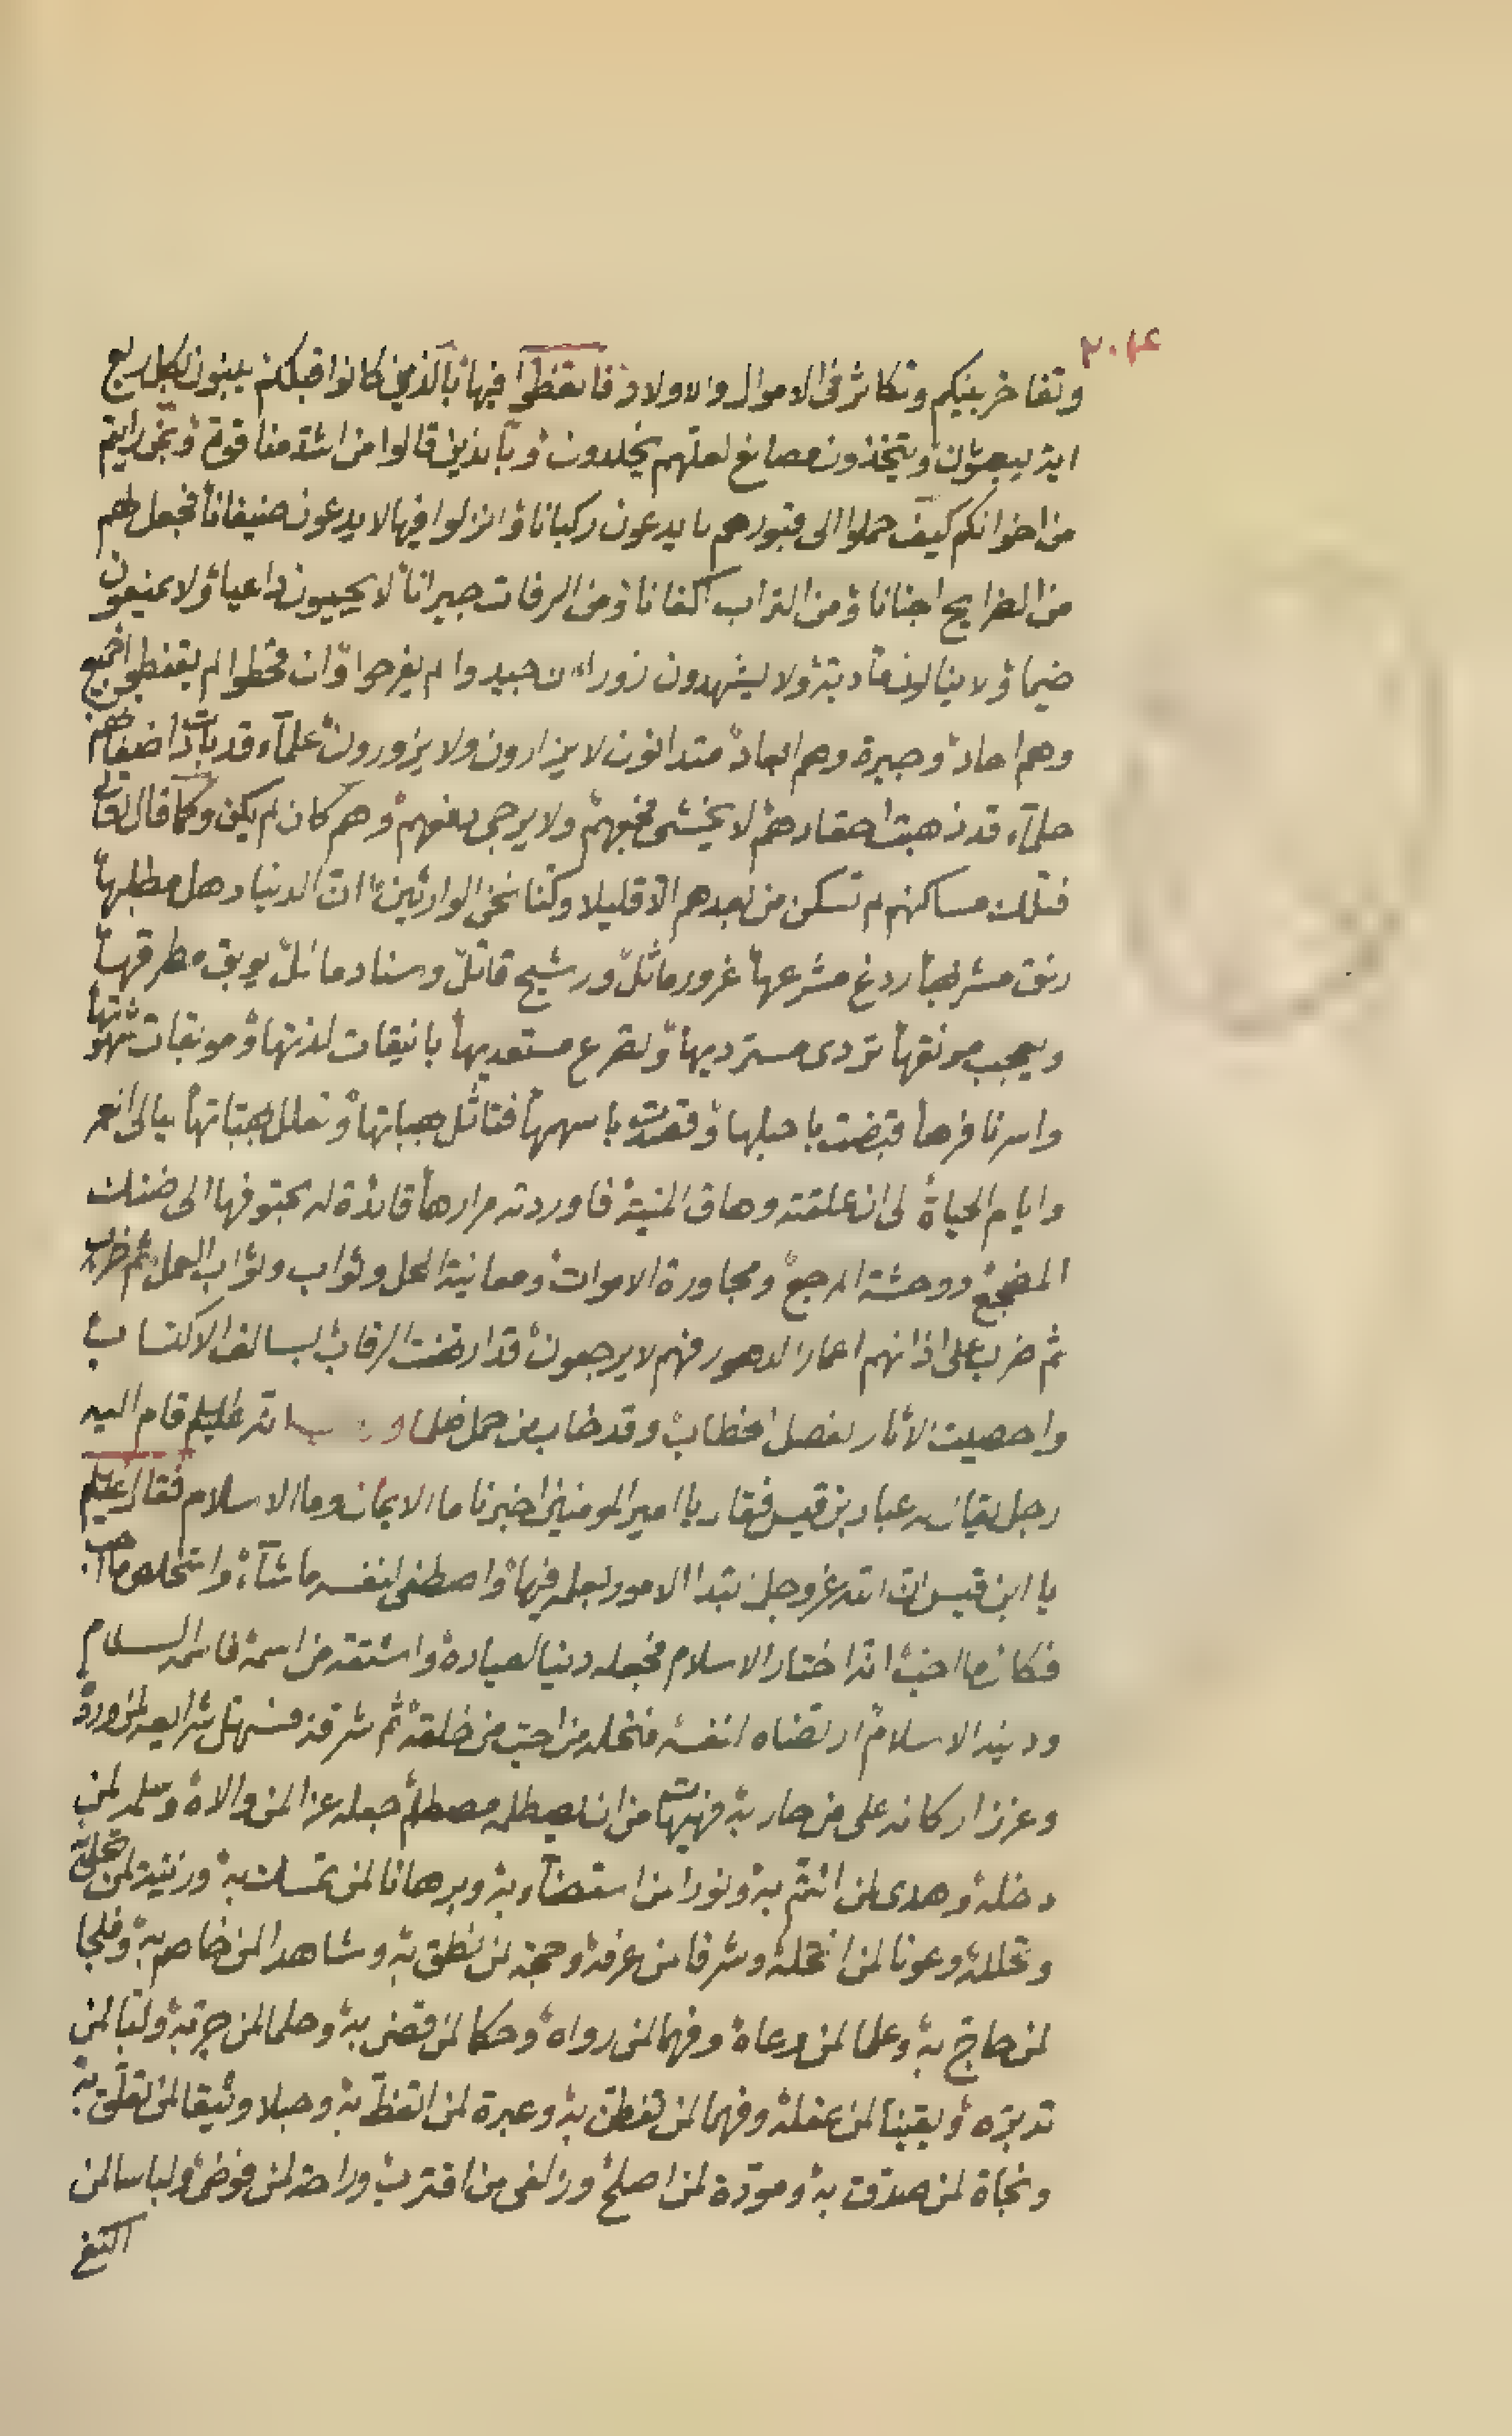 ٢٠١٤
وتفاخر بينكم وتكاثر في الاموال والاولاد فاتعظوا فيها بالذين كانوا قبلكم يبنون بكل ريع
اية يعبثون ويتخذون مصانع لعلهم يخلدون وبالذين قالوا من اشد منا قوة وبمن رايتم
من اخوانكم كيف حملوا الى قبورهم لا يدعون ركبانا وانزلوا فيها لا يدعون ضيفانا فجعل لهم
من الضرايح اجنانا ومن التراب اكفانا ومن الرفات جيرانا لا يجيبون داعيا ولا يمنعون
ضيما ولا ينالون مادبة ولا يشهدون زورا ان جيدوا لم يفرحوا وان قحطوا لم يقنطوا جميع
وهم احاد وجيرة وهم ابعاد متدانون لا يزارون ولا يزورون علماء قد بادت اضغانهم
حلماء قد ذهبت احقادهم لا يخشى فجعهم ولا يرجى دفعهم وهم كان لم يكن وكما قال تعالى
فتلك مساكنهم لم تسكن من بعدهم الا قليلا وكنا نحن الوارثين ان الدنيا دحل مطلبها
رنق مشربها ردغ مشرعها غرور ماثل وشبح قاتل وسناد مائل يوبق مطرقها
ويعجب مونقها تردى مستزديها وتصرع مستعديها بانيقات لذتها وموبقات شهوتها
واسر نافرها قبضت باحبلها وقصدت باسهمها فتاثل هباتها وتعلل بهباتها ليالي العمر
وايام الحياة الى ان علقته وهاق المنية فاوردته مرارها قائدة له بحتوفها الى ضنك
المضجع ووحشة المرجع ومجاورة الاموات ومعاينة المحل وثواب العمل
ثم ضرب على اذانهم اعمار الدهور فهم لا يرجعون قد ارتهنت الرقاب بسالف الاكتساب
واحصيت الاثار بفصل الخطاب وقد خاب من حمل ظلما عليه السلم قام اليه
رجل يقال له عباد بن قيس فقال يا امير المومنين اخبرنا ما الايمان وما الاسلام فقال عليلم
يا ابن قيس ان الله عز وجل ابتدا الامور بعلمه فيها واصطفى لنفسه ما شاء واستخلص ما احب
فكان مما احب انه اختار الاسلام فجعله دينا لعباده واشتقه من اسمه فاسمه السلام
ودينه الاسلام ارتضاه لنفسه فنحله من احب من خلقه ثم شرفه فسهل شرايعه لمن ورده
وعزز اركانه على من حاربه فهيهات من ان يصطلمه مصطلم جعله عزا لمن والاه وسلما لمن
دخله وهدى لمن ائتم به ونورا لمن استضاء به وبرهانا لمن تمسك به وزينة لمن تحلى
وتجلله وعونا لمن انتحله وشرفا لمن عرفه وحجة لمن نطق به وشاهدا لمن خاصم به وفلجا
لمن حاج به وعلما لمن وعاه وفهما لمن رواه وحكما لمن قضى به وحلما لمن جرب به ولبا لمن
تدبره ويقينا لمن عقله وفهما لمن تفطن به وعبرة لمن اتعظ به وحبلا وثيقا لمن تعلق به
ونجاة لمن صدق به ومودة لمن اصلح وزلفى لمن اقترب وراحة لمن فوض ولباسا لمن
اكتفى